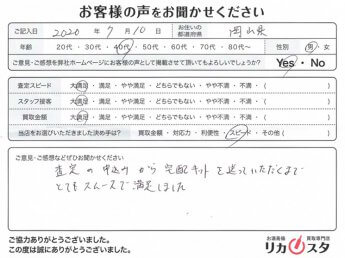 お客様の声をお聞かせください
ご記入日 2020年 7月 10日 お住いの都道府県 岡山県
年齢 20代・30代・40代・50代・60代・70代・80代〜 性別 男・女
ご意見・ご感想を弊社ホームページにお客様の声として掲載させて頂いてもよろしいでしょうか? Yes・No
査定スピード 大満足・満足・やや満足・どちらでもない・やや不満・不満・( )
スタッフ接客 大満足・満足・やや満足・どちらでもない・やや不満・不満・( )
買取金額 大満足・満足・やや満足・どちらでもない・やや不満・不満・( )
当店をお選びいただきました決め手は? 買取金額・対応力・利便性・スピード・その他( )
ご意見・ご感想などぜひお聞かせください
査定の申込みから宅配キットを送っていただくまで
とてもスムーズで満足しました
ご協力ありがとうございました。
この度は誠にありがとうございました。
お酒高価買取専門店
リカスタ